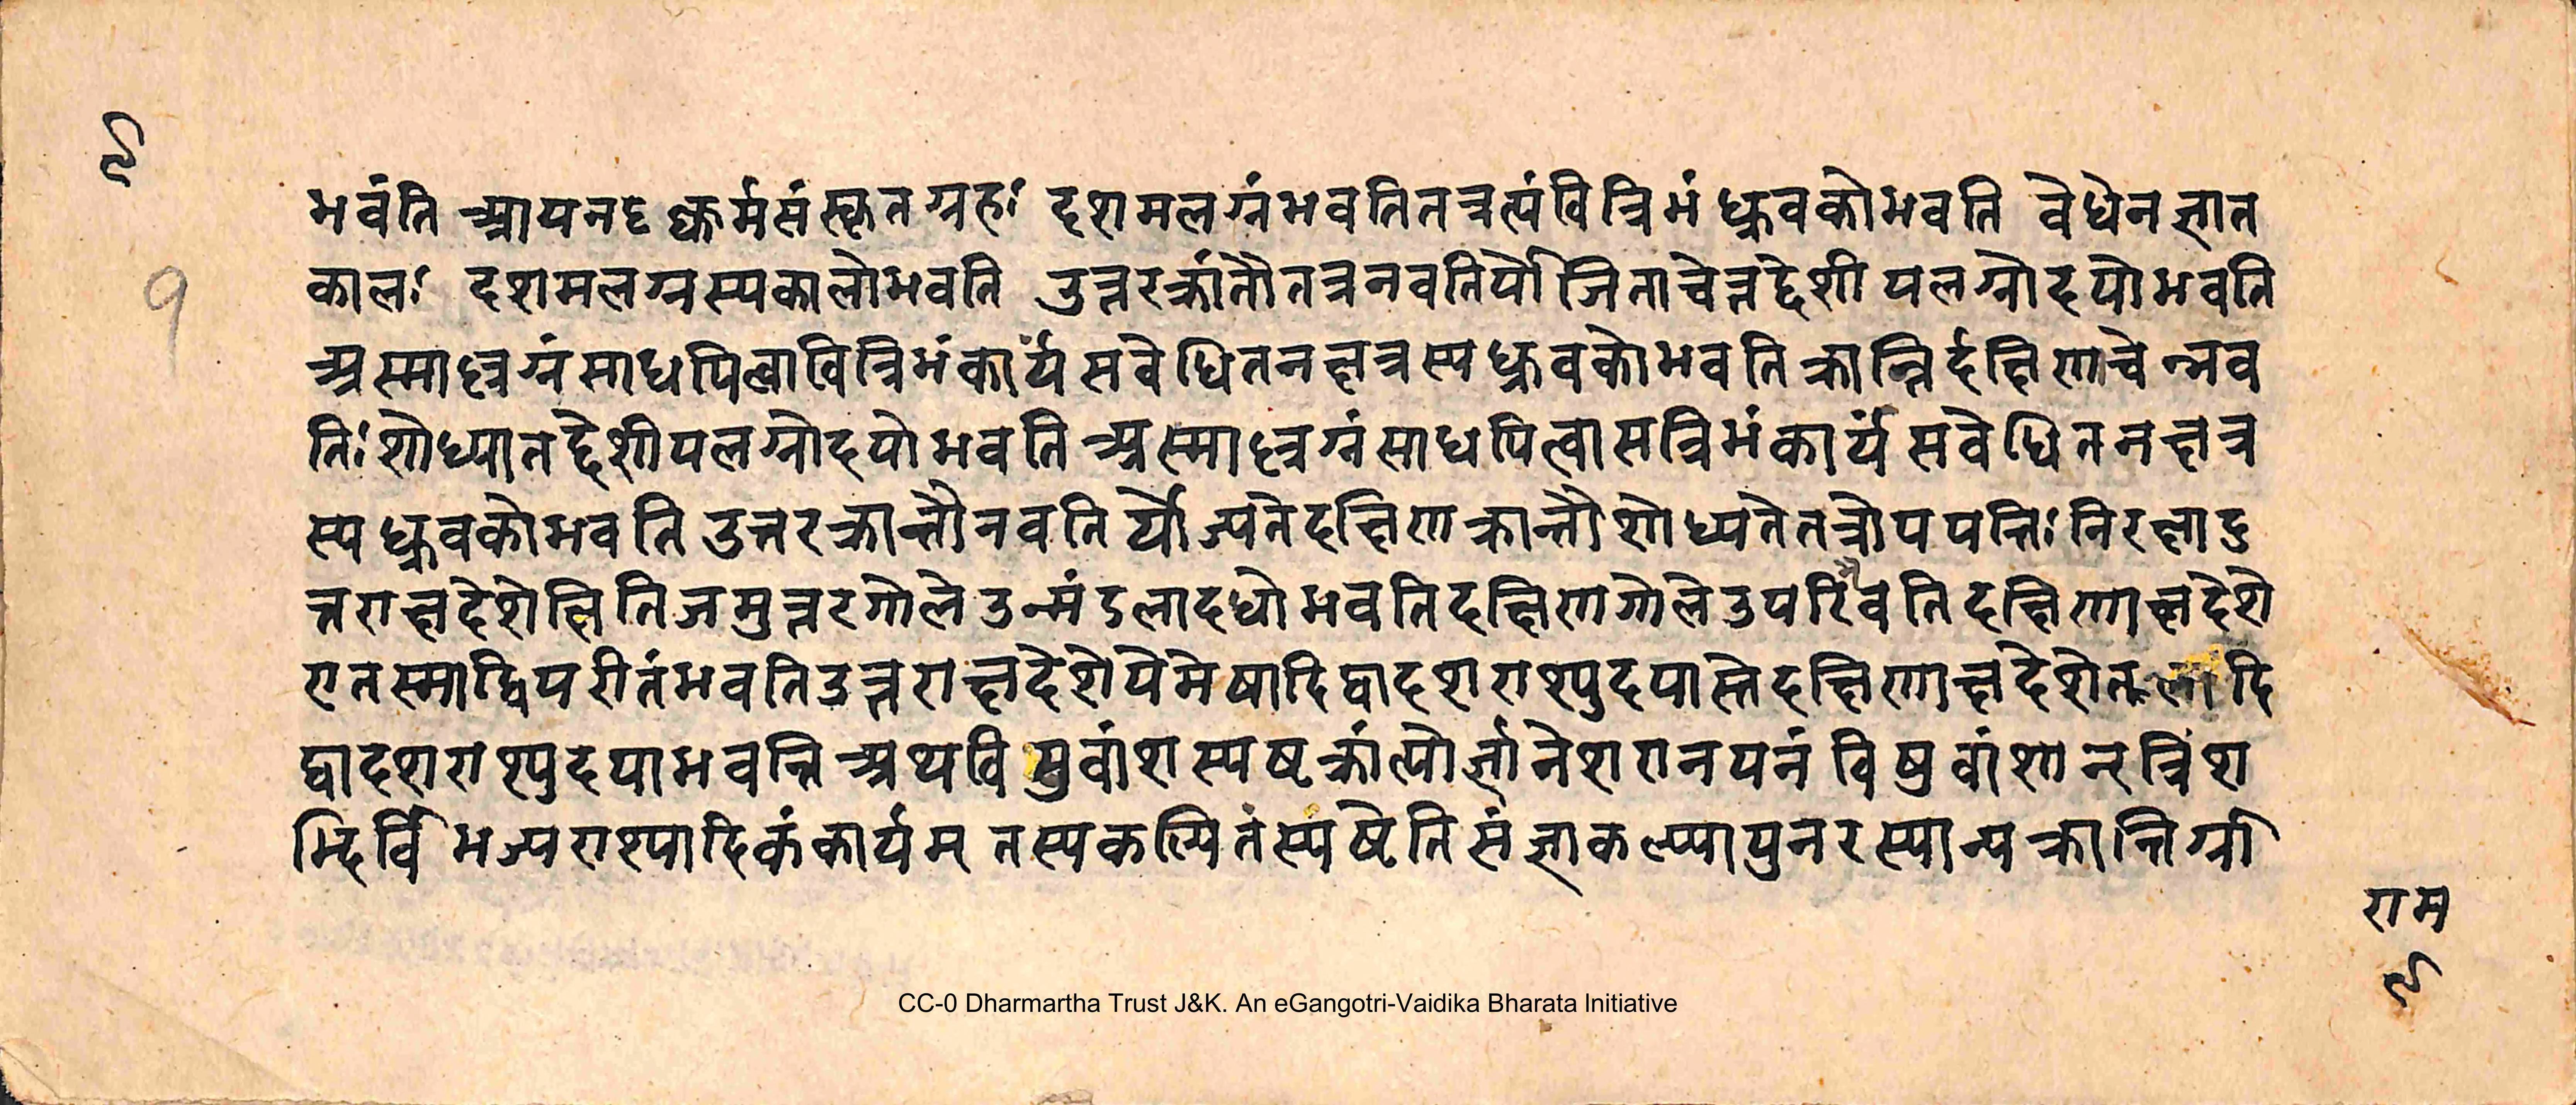 ९
१
भवंति आयनदृक्कर्मसंस्कृतग्रहः दशमलग्नंभवतितत्रत्यंवित्रिभंध्रुवकोभवति वेधेनज्ञात
कालः दशमलग्नस्यकालोभवति उत्तरक्रांतौतत्रनवतिर्योजिताचेत्तद्देशीयलग्नोदयोभवति
अस्माल्लग्नंसाधयित्वावित्रिभंकार्यंसवेधितनक्षत्रस्यध्रुवकोभवति क्रान्तिर्दक्षिणाचेन्नव
तिःशोध्यातद्देशीयलग्नोदयोभवति अस्माल्लग्नंसाधयित्वासत्रिभंकार्यंसवेधितनक्षत्र
स्यध्रुवकोभवति उत्तरक्रान्तौनवतिर्योज्यतेदक्षिणक्रान्तौशोध्यतेतत्रोपपत्तिःनिरक्षादु
त्तराक्षदेशेक्षितिजमुत्तरगोलेउन्मंडलादधोभवतिदक्षिणगोलेउपरिवतिदक्षिणाक्षदेशे
एतस्माद्विपरीतंभवतिउत्तराक्षदेशेयेमेषादिद्वादशराश्युदयास्तेदक्षिणाक्षदेशेतुलादि
द्वादशराश्युदयाभवन्ति अथविषुवांशस्पष्टक्रांत्योर्ज्ञानेशरानयनं विषुवांशान्त्रिंश
द्भिर्विभज्यराश्यादिकंकार्यम् तस्यकल्पितंस्पष्टेतिसंज्ञाकल्प्यापुनरस्यान्यक्रान्तिर्ग्रा
राम
९
CC-0 Dharmartha Trust J&K. An eGangotri-Vaidika Bharata Initiative